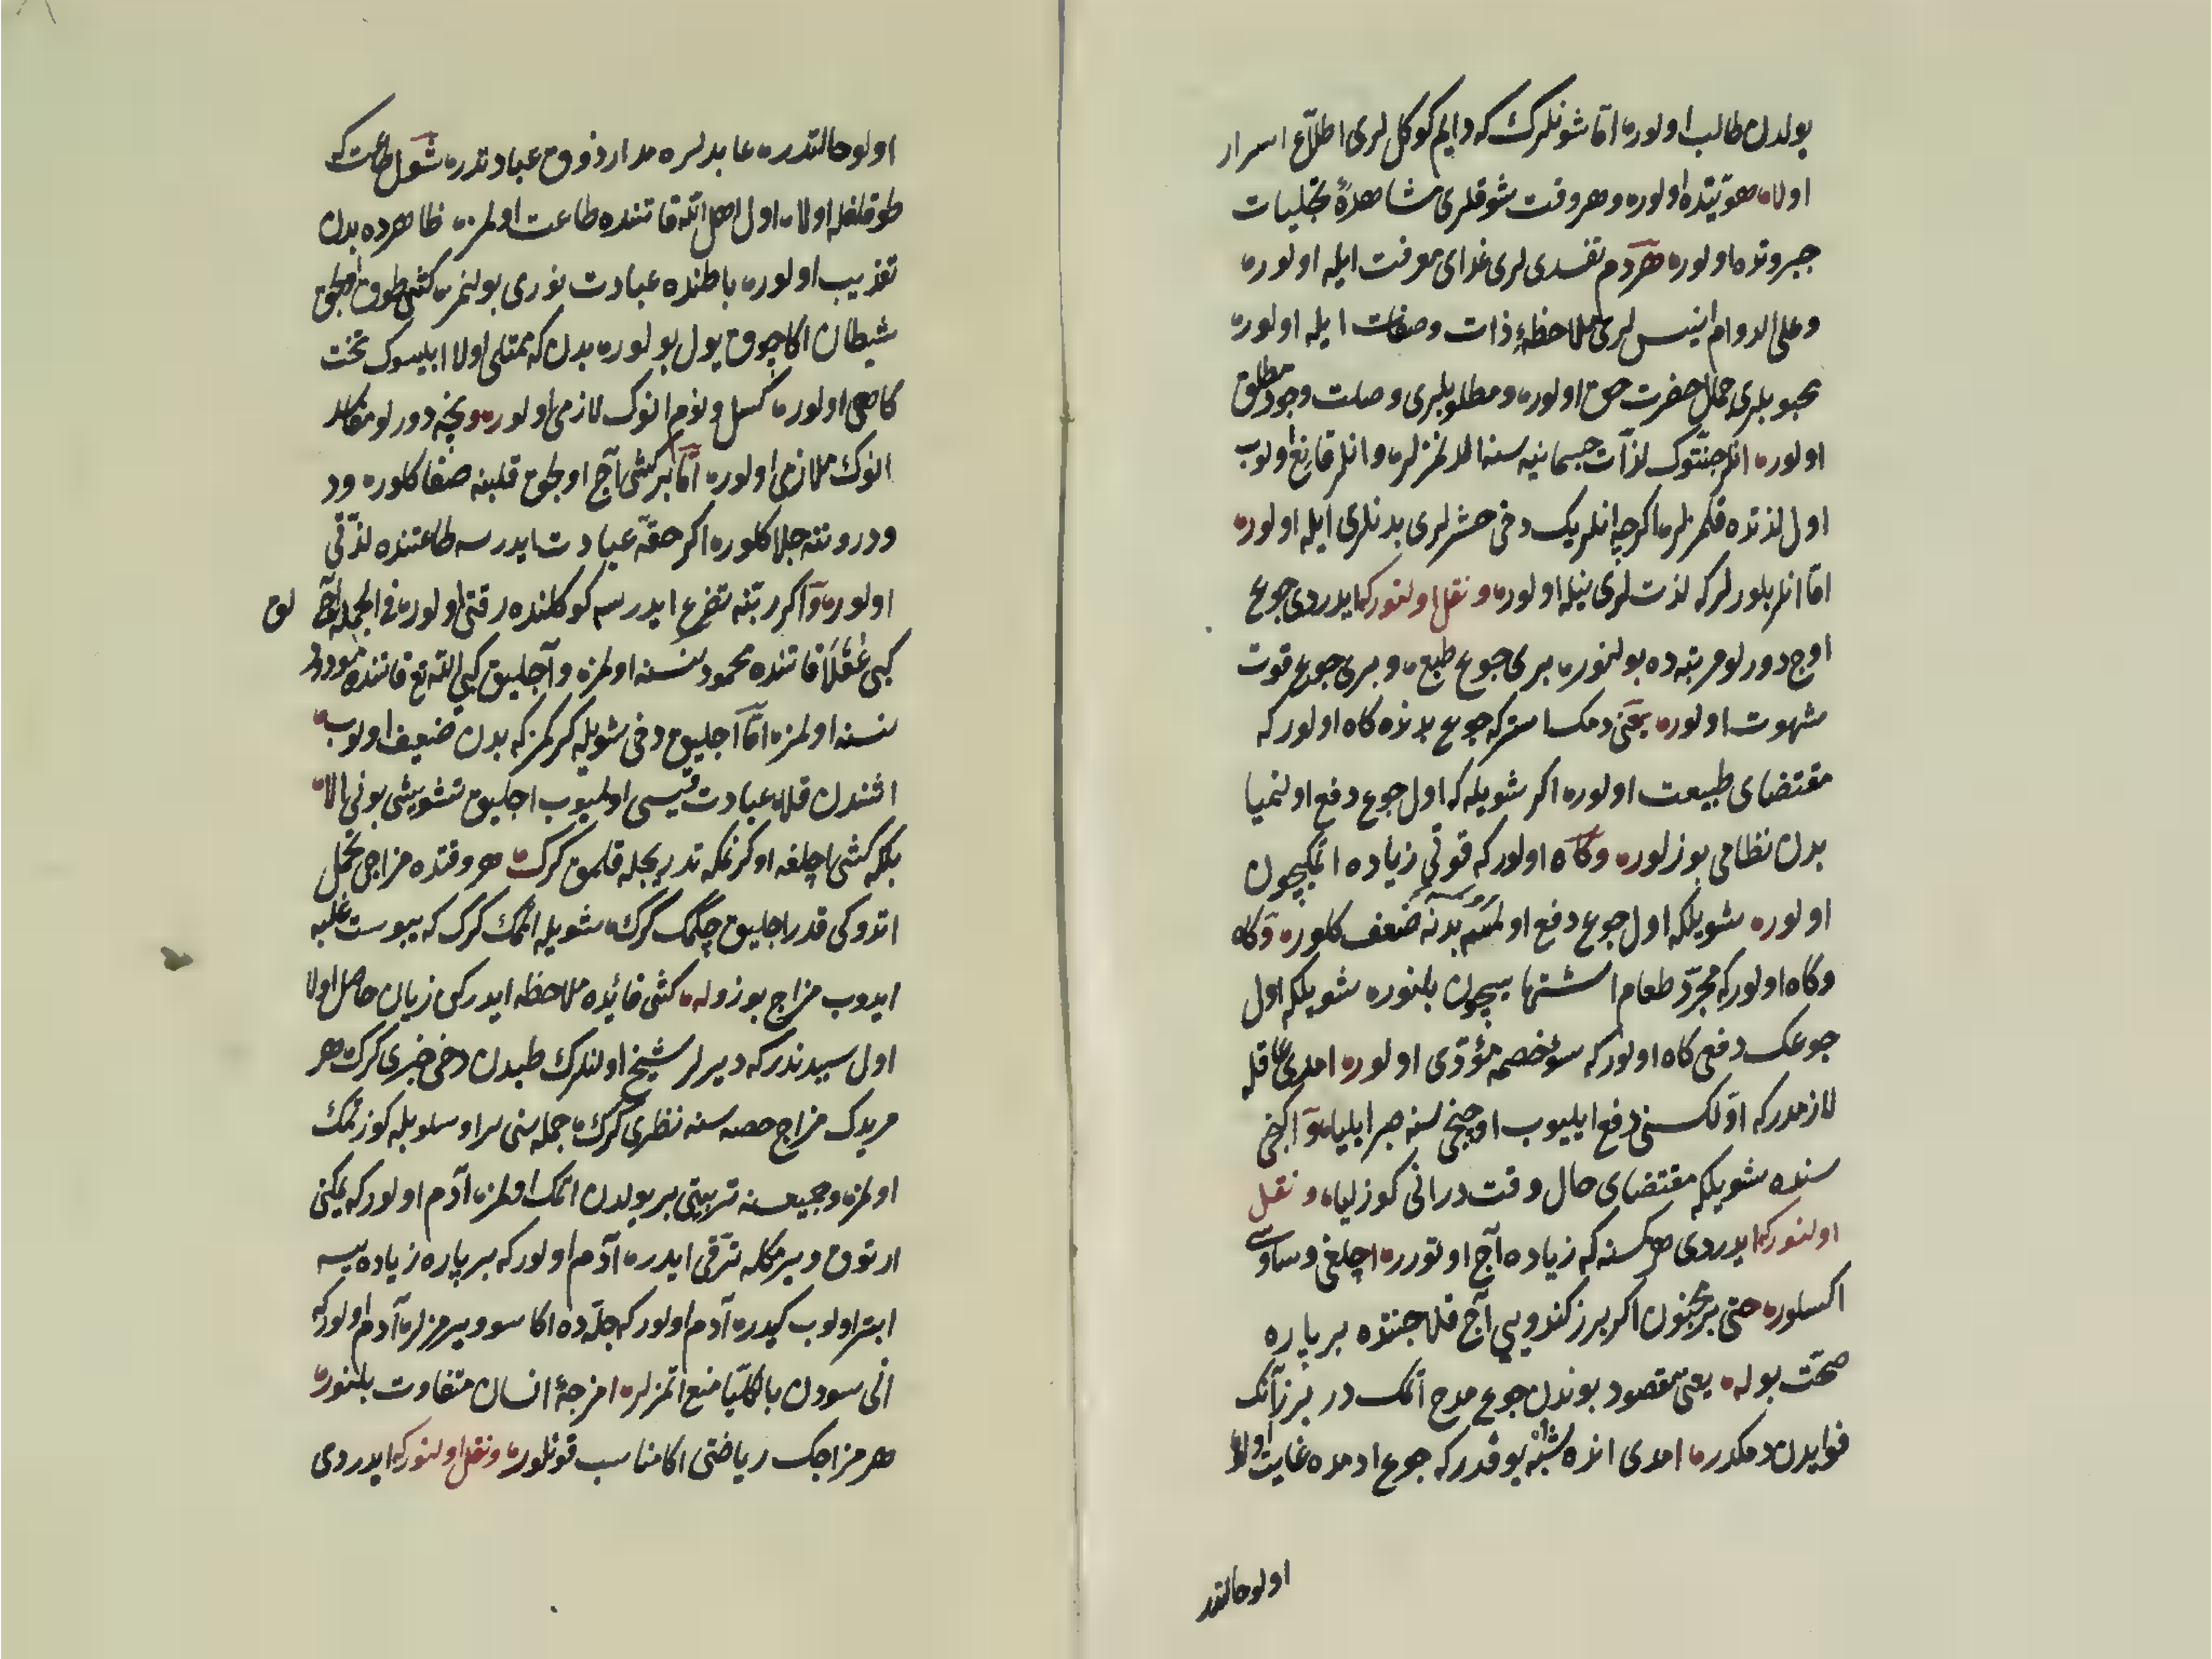 بولدن طالب اولور اما شونلرك كه دایم كوكل لری اطلاع اسرار
اولا هویتده اولور و هر وقت شوقلری مشاهدۀ تجلیات
جبروتده اولور هر دم نفسدی لری غدای معرفت ایله اولور
و علی الدوام انیس لری ملاحظۀ ذات و صفات ایله اولور
محبوبلری جمال حضرت حق اولور و مطلوبلری وصلت وجود مطلق
اولور انلر جنتوك لذات جسمانیه سنه الدنمزلر و انلر قانع اولوب
اول لذتده قلمزلر اكرچه انلریك دخی حشرلری بدنلری ایله اولور
اما انلر بلورلر كه لذت لری نیله اولور و نقل اولنور كه ایدردی جوع
اوج دورلو مرتبه ده بولنور بری جوع طبع و بری جوع قوت
شهوت اولور یعنی دمك استر كه جوع بدنده كاه اولور كه
مقتضای طبیعت اولور اكر شویله كه اول جوع دفع اولنمیا
بدن نظامی بوزلور و كاه اولور كه قوتی زیاده اتمكیچون
اولور شویلكه اول جوع دفع اولمسه بدنه ضعف كلور و كاه
و كاه اولور كه مجرد طعام اشتها سیچون بلنور شویلكه اول
جوعك دفعی كاه اولور كه سوء خصمه مؤدی اولور امدی عاقله
لازمدر كه اول كسنی دفع ایلیوب اوچنجی سنه صبر ایلیا و اكنجی
سنده شویلكه مقتضای حال وقت در انی كوزلیا و نقل
اولنور كه ایدردی هر كسنه كه زیاده آج اوتورر اچلغی وساوسی
اكسلور حتی بر مجنون اكر برز كندویی آج قلا جنتده بر پاره
صحت بوله یعنی مقصود بوندن جوع مدح اتمك در برز آنك
فوایدن دمكدر امدی انده شبهه یوقدر كه جوع ادمده غایت اولو
اولو حالتدر
اولو حالتدر عابدلره مدار ذوق عبادتدر شول طاعت كه
طوقلغله اولا اول اهل الله قاتنده طاعت اولمز ظاهرده بدن
تعذیب اولور باطنده عبادت نوری بولنمز كشی طوق اولجق
شیطان اكا چوق یول بولور بدن كه ممتلی اولا ابلیسوك تخت
كاهی اولور كسل و نوم انوك لازمی اولور و نیچه دورلو مفاسد
انوك ملازمی اولور اما بر كشی آج اولجق قلبنه صفا كلور و در
و درونه جلا كلور اكر حقه عبادت ایدرسه طاعتنده لذتی
اولور و اكر ربنه تضرع ایدرسه كوكلنده رقتی اولور فی الجمله آچ لق
كبی عقلا قاتنده محمود نسنه اولمز و آجلیق كبی الله تع قاتنده مودود
نسنه اولمز اما آجلیق دخی شویله كركمز كه بدن ضعیف اولوب
اشندن قلا عبادت قیسی اولمیوب اجلیق تشویشی بونی الا
بلكه كشی اچلغه اوكرنمكه تدریجله قلمق كرك هر وقتده مزاجی تحمل
اتدوكی قدر اجلیق چكمك كرك شویله اتمك كرك كه یبوست غلبه
ایدوب مزاج بوزوله كشی فائده ملاحظه ایدركن زیان حاصل اولا
اول سببدندر كه دیرلر شیخ اولنلرك طبدن دخی خبری كرك هر
مریدك مزاج حصه سنه نظری كرك جمله سنی براوسلوبله كوزتمك
اولمز و جمیعسنه تربیتی بر یولدن اتمك اولمز آدم اولور كه یمكنی
ارتوق ویرمكله ترقی ایدر آدم اولور كه بر پاره زیاده یسه
ابتر اولوب كیدر آدم اولور كه جله ده اكا سو ویرمزلر آدم اولور كه
انی سودن بالكلیا منع اتمزلر امزجۀ انسان متفاوت بلنور
هر مزاجك ریاضتی اكا مناسب قونلور و نقل اولنور كه ایدردی